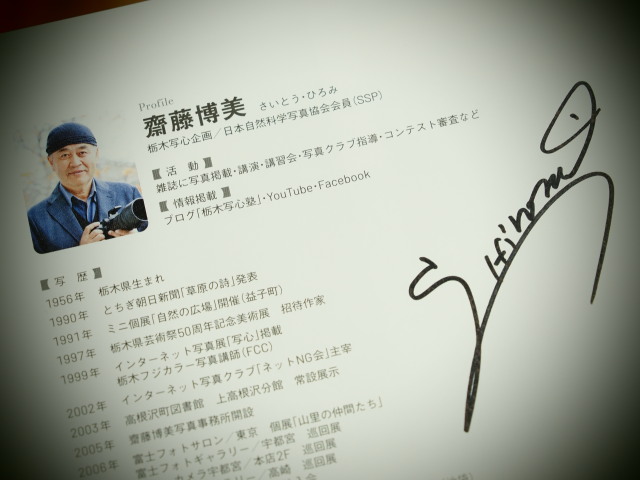 Profile
齋藤博美 さいとう・ひろみ
栃木写心企画／日本自然科学写真協会会員(SSP)
【活 動】
雑誌に写真掲載・講演・講習会・写真クラブ指導・コンテスト審査など
【情報掲載】
ブログ「栃木写心塾」・YouTube・Facebook
【写 歴】
1956年 栃木県生まれ
1990年 とちぎ朝日新聞「草原の詩」発表
1991年 ミニ個展「自然の広場」開催(益子町)
1997年 栃木県芸術祭50周年記念美術展 招待作家
1999年 インターネット写真展「写心」掲載
栃木フジカラー写真講師(FCC)
2002年 インターネット写真クラブ「ネットNG会」主宰
2003年 高根沢町図書館 上高根沢分館 常設展示
2005年 齋藤博美写真事務所開設
2006年 富士フォトサロン／東京 個展「山里の仲間たち」
富士フォトギャラリー／宇都宮 巡回展
カメラ宇都宮／本店2F 巡回展
ギャラリー／高崎 巡回展
Hiromi